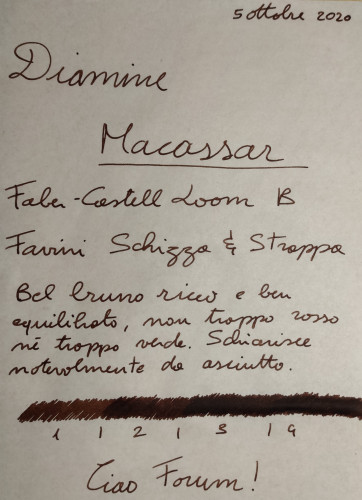 5 ottobre 2020
Diamine
Macassar
Faber-Castell Loom B
Favini Schizza & Strappa
Bel bruno ricco e ben
equilibrato, non troppo rosso
né troppo verde. Schiarisce
notevolmente da asciutto.
1 | 2 | 3 | 4
Ciao Forum!